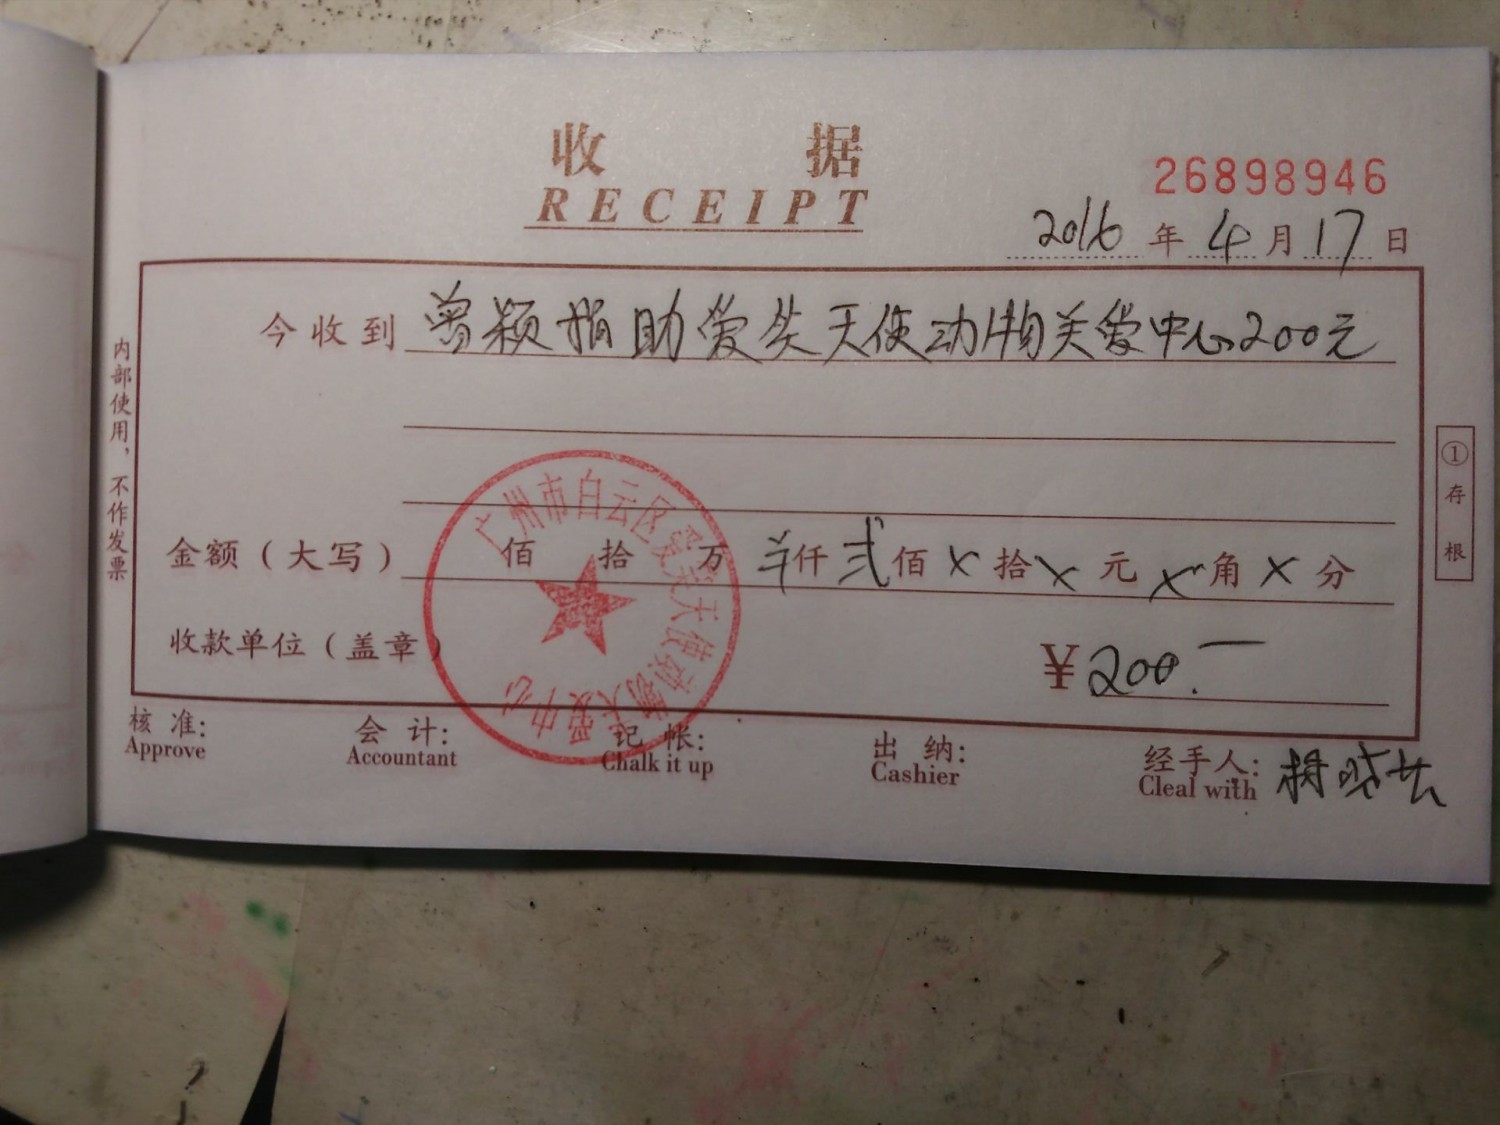 收 据
RECEIPT
26898946
2016 年 4 月 17 日
今收到 曾颖捐助爱笑天使动物关爱中心200元
金额（大写） 佰 拾 万 仟 贰 佰 × 拾 × 元 × 角 × 分
收款单位（盖章）
￥200.一
广州市白云区爱笑天使动物关爱中心
核 准：
Approve
会 计：
Accountant
记 帐：
Chalk it up
出 纳：
Cashier
经手人：
Cleal with
内部使用，不作发票
①存根